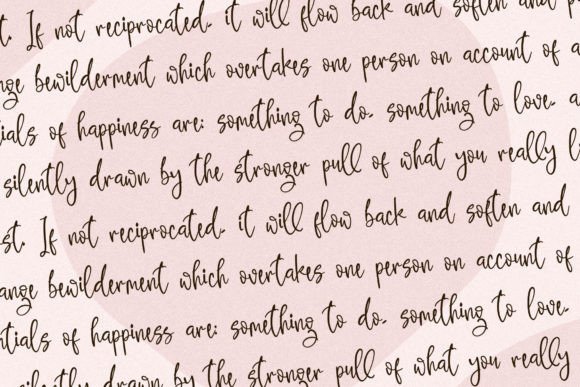 t. If not reciprocated, it will flow back and soften and p
ange bewilderment which overtakes one person on account of a
tials of happiness are: something to do, something to love, a
silently drawn by the stronger pull of what you really l
st. If not reciprocated, it will flow back and soften and
ange bewilderment which overtakes one person on account of
ntials of happiness are: something to do, something to love,
silently drawn by the stronger pull of what you really